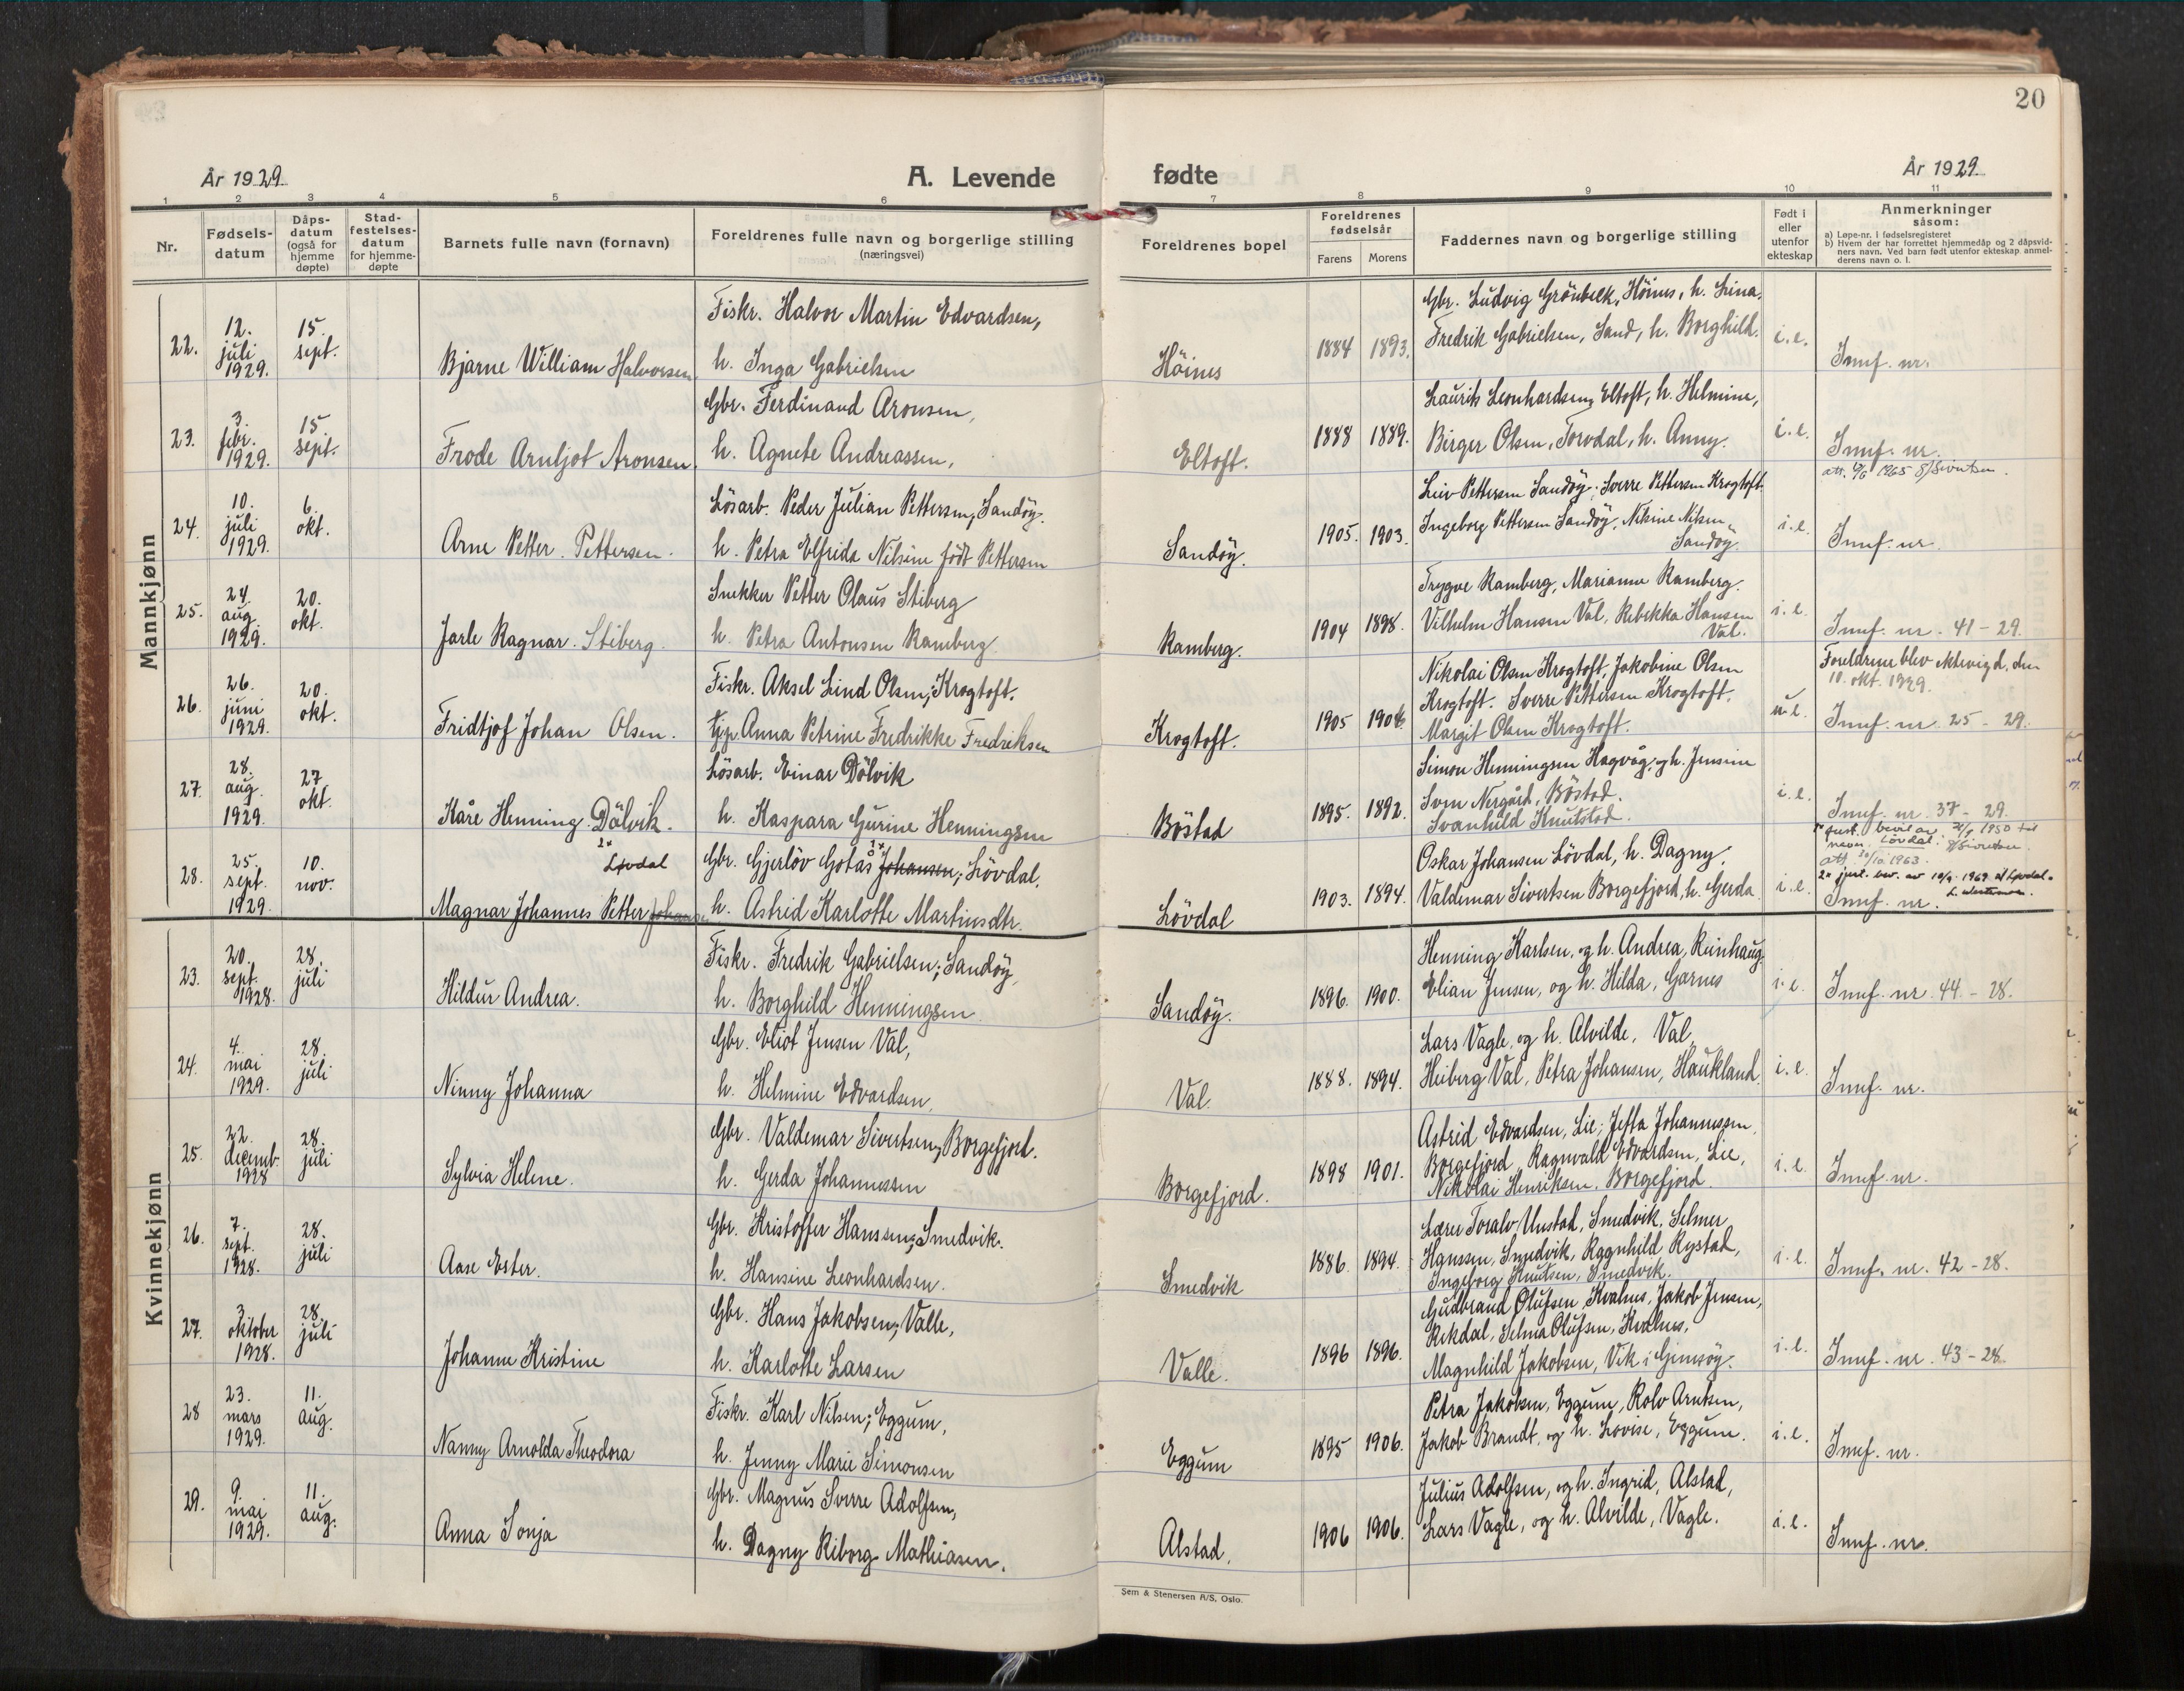 20
År 1929.
A. Levende
fødte
År 1929.
1 2 3 4 5 6 7 8 9 10 11
Nr.
Fødsels-
datum
Dåps-
datum
(også for
hjemme
døpte)
Stad-
festelses-
datum
for hjemme-
døpte
Barnets fulle navn (fornavn)
Foreldrenes fulle navn og borgerlige stilling
(næringsvei)
Foreldrenes bopel
Foreldrenes
fødselsår
Farens Morens
Faddernes navn og borgerlige stilling
Født i
eller
utenfor
ekteskap
Anmerkninger
såsom:
a) Løpe-nr. i fødselsregisteret
b) Hvem der har forrettet hjemmedåp og 2 dåpsvid-
ners navn. Ved barn født utenfor ekteskap anmel-
derens navn o. l.
Mannkjønn
22.
12.
juli
1929.
15.
sept.
Bjarne William Halvorsen
Fiskr. Halvor Martin Edvardsen,
h. Inga Gabrielsen
Höines
1884 1893.
Gbr. Ludvig Grönbekk, Höines, h. Lina,
Fredrik Gabrielsen, Sand, h. Borghild.
i.e.
Innf. nr.
23.
3.
febr.
1929.
15.
sept.
Frode Arnljot Aronsen.
Gbr. Ferdinand Aronsen,
h. Agnete Andreassen,
Eltoft.
1888 1889.
Laurits Leonhardsen, Eltoft, h. Helmine,
Birger Olsen, Torvdal, h. Anny.
i.e.
Innf. nr.
att. 1965 Sivertsen.
24.
10.
juli
1929.
6.
okt.
Arne Petter. Pettersen.
Lösarb. Peder Julian Pettersen, Sandöy.
h. Petra Elfrida Nilsine födt Pettersen
Sandöy.
1905. 1903.
Leiv Pettersen Sandöy, Sverre Pettersen Krogtoft.
Ingeborg Pettersen Sandöy, Nilsine Nilsen,
Sandöy.
i.e.
Innf. nr.
25.
24.
aug.
1929.
20.
okt.
Jarle Ragnar. Stiberg.
Snekker Petter Olaus Stiberg
h. Petra Antonsen Ramberg.
Ramberg.
1904 1898.
Trygve Ramberg, Marianne Ramberg.
Vilhelm Hansen Val, Rebekka Hansen
Val.
i.e.
Innf. nr. 41-29.
26.
26.
juni
1929.
20.
okt.
Fridtjof Johan Olsen.
Fiskr. Aksel Lind Olsen, Krogtoft.
Anna Petrine Fredrikke Fredriksen
Krogtoft.
1905 1906
Nikolai Olsen Krogtoft, Jakobine Olsen
Krogtoft. Sverre Pettersen Krogtoft.
Margit Olsen Krogtoft.
u.e.
Foreldrene blev ektevigd. den
10. okt. 1929.
Innf. nr. 25-29.
27.
28.
aug.
1929.
27
okt.
Kåre Henning Dölvik.
Lösarb. Einar Dölvik
h. Kaspara Gurine Henningsen
Böstad
1895. 1892.
Simon Henningsen Hagvåg, og h. Jensine
Sven Nergård, Böstad.
Svanhild Knutstad.
i.e.
Innf. nr. 37-29.
28.
25.
sept.
1929.
10.
nov.
2x
Løvdal
Magnar Johannes Petter Johansen
Gbr. Gjerlöv Gotås Johansen, Lövdal.
h. Astrid Karlotte Martinsdtr.
Lövdal
1903. 1894.
Oskar Johansen Lövdal, h. Dagny.
Valdemar Sivertsen Borgefjord, h. Gerda
i.e.
bevil av 1950 til
navn Løvdal. Sivertsen.
att. 1963.
Innf. nr.
Kvinnekjønn
23.
20.
sept.
1928.
28.
juli
Hildur Andrea.
Fiskr. Fredrik Gabrielsen, Sandöy,
h. Borghild Henningsen.
Sandöy.
1896. 1900.
Henning Karlsen, og h. Andrea, Reinhaug.
Elian Jensen, og h. Hilda, Garnes
i.e.
Innf. nr. 44-28.
24.
4.
mai
1929.
28.
juli
Ninny Johanna
Gbr. Eliot Jensen Val,
h. Helmine Edvardsen.
Val.
1888. 1894.
Lars Vagle, og h. Alvilde, Val,
Heiberg Val, Petra Johansen, Haukland.
i.e.
Innf. nr.
25.
22.
decemb.
1928
28.
juli
Sylvia Helene.
Gbr. Valdemar Sivertsen, Borgefjord.
h. Gerda Johannessen
Borgefjord.
1898 1901.
Astrid Edvardsen, Lie, Jetta Johannessen,
Borgefjord, Ragnvald Edvardsen, Lie,
Nikolai Henriksen, Borgefjord.
i.e.
Innf. nr.
26.
7.
sept.
1928.
28.
juli
Aase Ester.
Gbr. Kristoffer Hanssen, Smedvik.
h. Hansine Leonhardsen.
Smedvik
1886. 1894.
Lærer Toralv Unstad, Smedvik, Selmer
Hanssen, Smedvik, Ragnhild Rystad,
Ingeborg Knutsen, Smedvik.
i.e.
Innf. nr. 42-28.
27.
3.
oktober
1928.
28.
juli
Johanne Kristine
Gbr. Hans Jakobsen, Valle,
h. Karlotte Larsen
Valle.
1896 1896.
Gudbrand Olufsen, Kvalnes, Jakob Jensen,
Rekdal, Selma Olufsen, Kvalnes,
Magnhild Jakobsen, Vik i Gimsöy.
i.e.
Innf. nr. 43-28.
28
23.
mars
1929.
11.
aug.
Nanny Arnolda Theodora
Fiskr. Karl Nilsen, Eggum,
h. Jenny Marie Simonsen
Eggum
1895 1906.
Petra Jakobsen, Eggum, Rolv Arntsen,
Jakob Brandt, og h. Lovise, Eggum.
i.e.
Innf. nr.
29.
9.
mai
1929.
11.
aug.
Anna Sonja
Gbr. Magnus Sverre Adolfsen,
h. Dagny Riborg Mathiasen.
Alstad,
1906 1906.
Julius Adolfsen, og h. Ingrid, Alstad,
Lars Vagle, og h. Alvilde, Vagle.
i.e.
Innf. nr.
Sem & Stenersen A/S, Oslo.